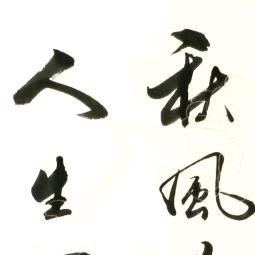 秋風
人生